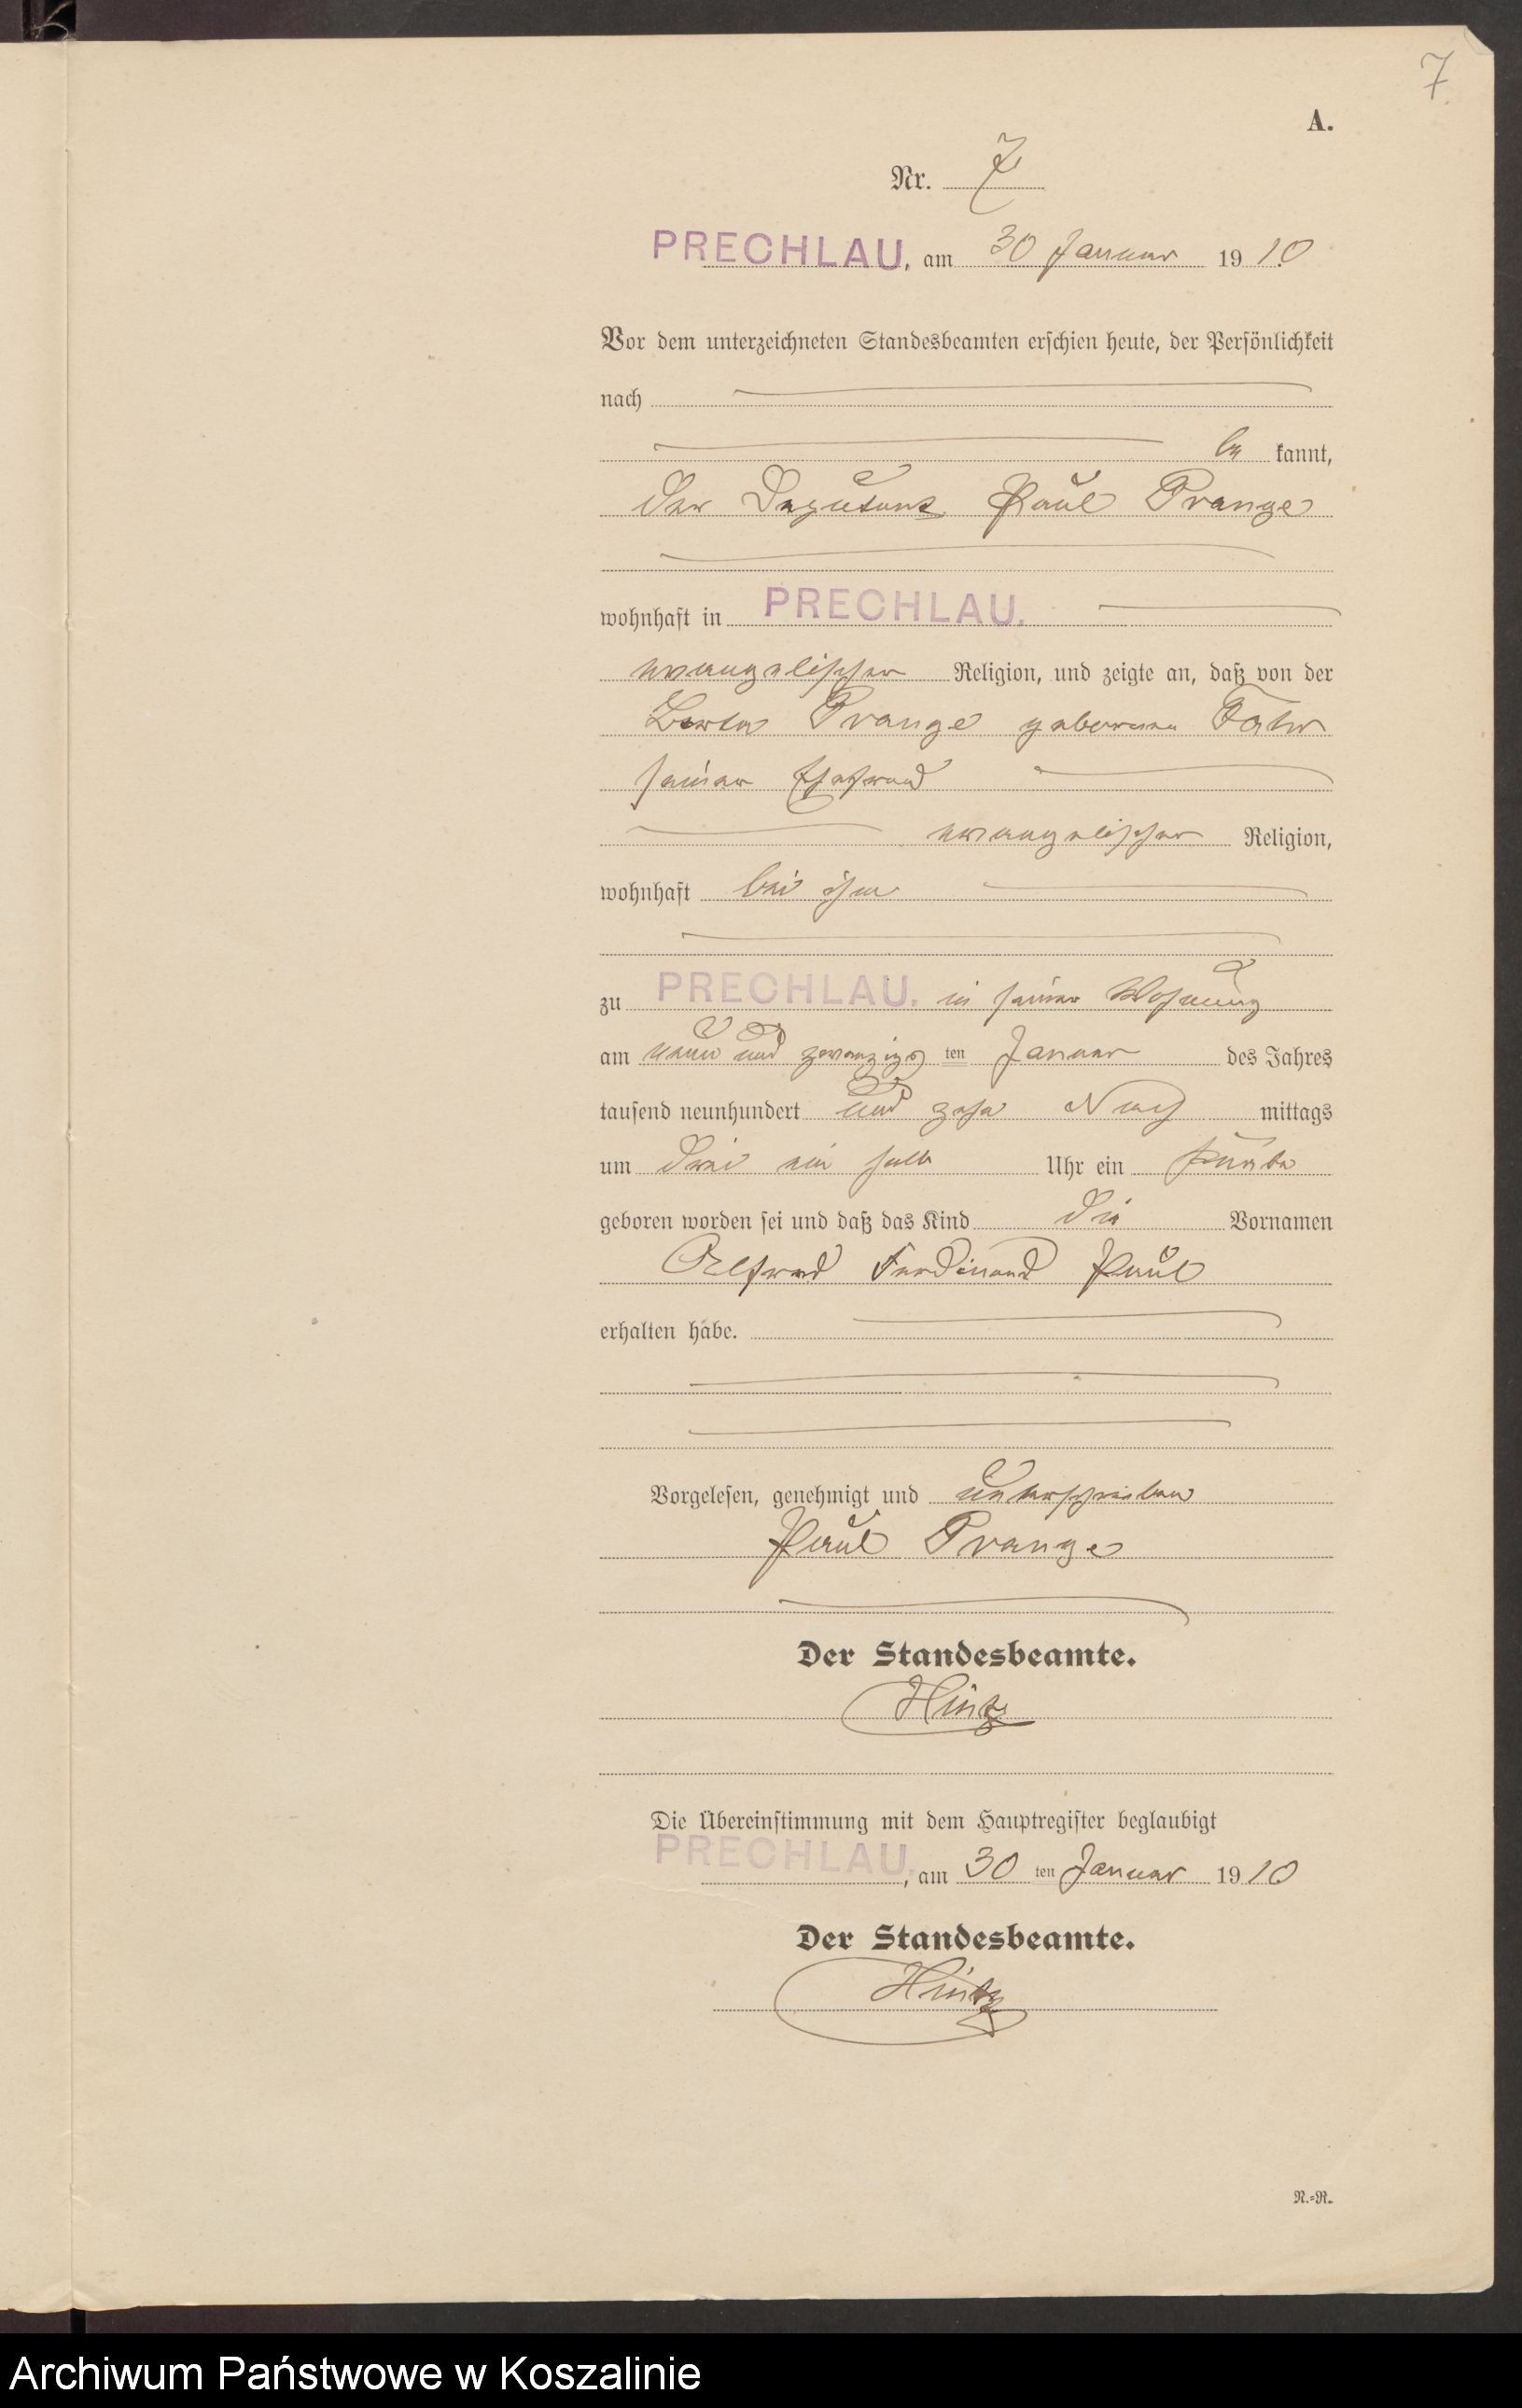 7
A.
Nr. 7
PRECHLAU, am 30 Januar 1910
Vor dem unterzeichneten Standesbeamten erschien heute, der Persönlichkeit
nach
be kannt,
der Deputant Paul Prange
wohnhaft in PRECHLAU.
evangelischer Religion, und zeigte an, daß von der
Berta Prange geborene
seiner Ehefrau
evangelischer Religion,
wohnhaft bei ihm
zu PRECHLAU. in seiner Wohnung
am neun und zwanzigs ten Januar des Jahres
tausend neunhundert und zehn Nach mittags
um drei ein halb Uhr ein Knabe
geboren worden sei und daß das Kind die Vornamen
Alfred Ferdinand Paul
erhalten habe.
Vorgelesen, genehmigt und unterschrieben
Paul Prange
Der Standesbeamte.
Hintz
Die Übereinstimmung mit dem Hauptregister beglaubigt
PRECHLAU, am 30 ten Januar 1910
Der Standesbeamte.
Hintz
N.=R.
Archiwum Państwowe w Koszalinie